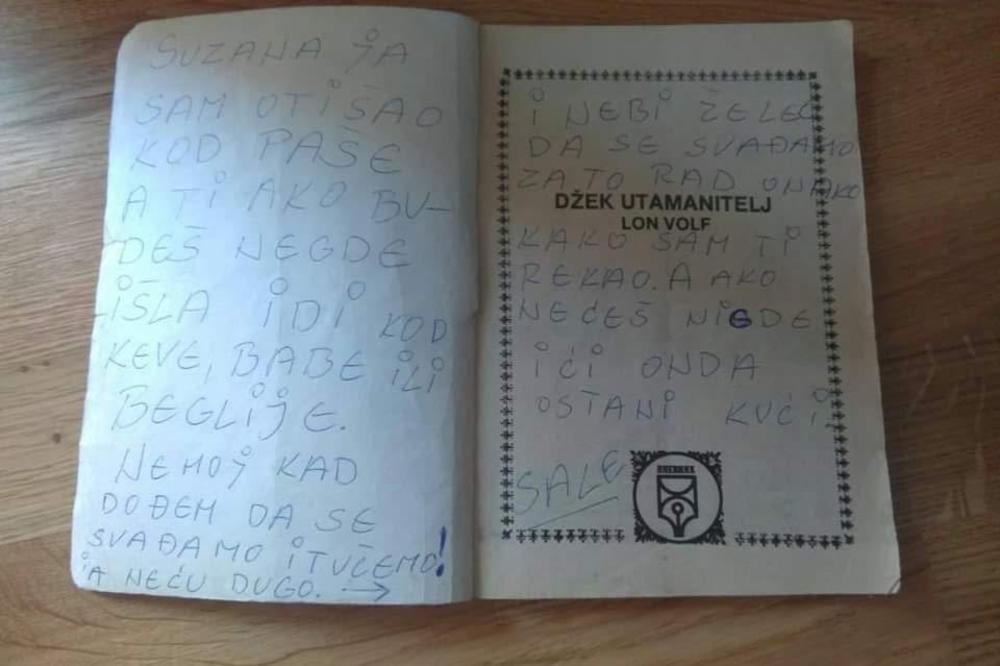 SUZANA JA
SAM OTIŠAO
KOD PAŠE
A TI AKO BU-
DEŠ NEGDE
IŠLA IDI KOD
KEVE, BABE ILI
BEGLIJE.
NEMOJ KAD
DOĐEM DA SE
SVAĐAMO I TUČEMO!
JA NEĆU DUGO. →
I NEBI ŽELEO
DA SE SVAĐAMO
ZATO RAD ONAKO
DŽEK UTAMANITELJ
LON VOLF
KAKO SAM TI
REKAO. A AKO
NEĆEŠ NIGDE
IĆI ONDA
OSTANI KUĆI.
SALE